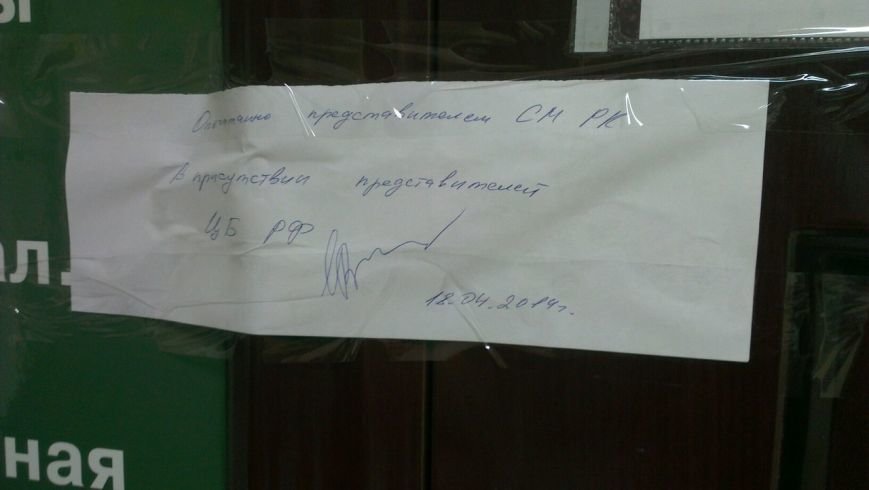 ы
Опечатано представителем СМ РК
в присутствии представителей
ЦБ РФ
18.04.2014г.
ал.
ная